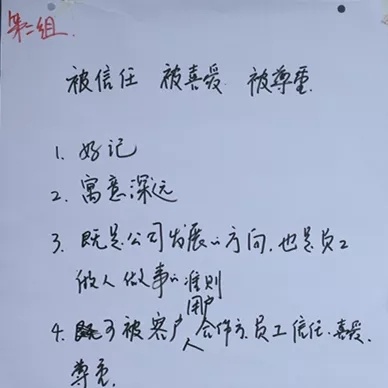 第二组.
被信任 被喜爱 被尊重
1. 好记
2. 寓意深远
3. 既是公司发展的方向,也是员工
做人做事的准则
用户
4. 可被客户、合作方、员工信任、喜爱、
尊重.